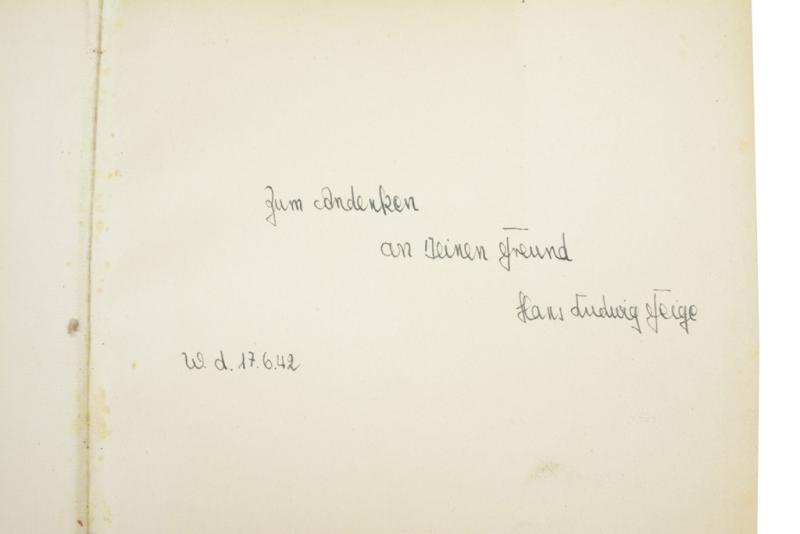 Zum Andenken
an Deinen Freund
Hans Ludwig Feige
W. d. 17.6.42